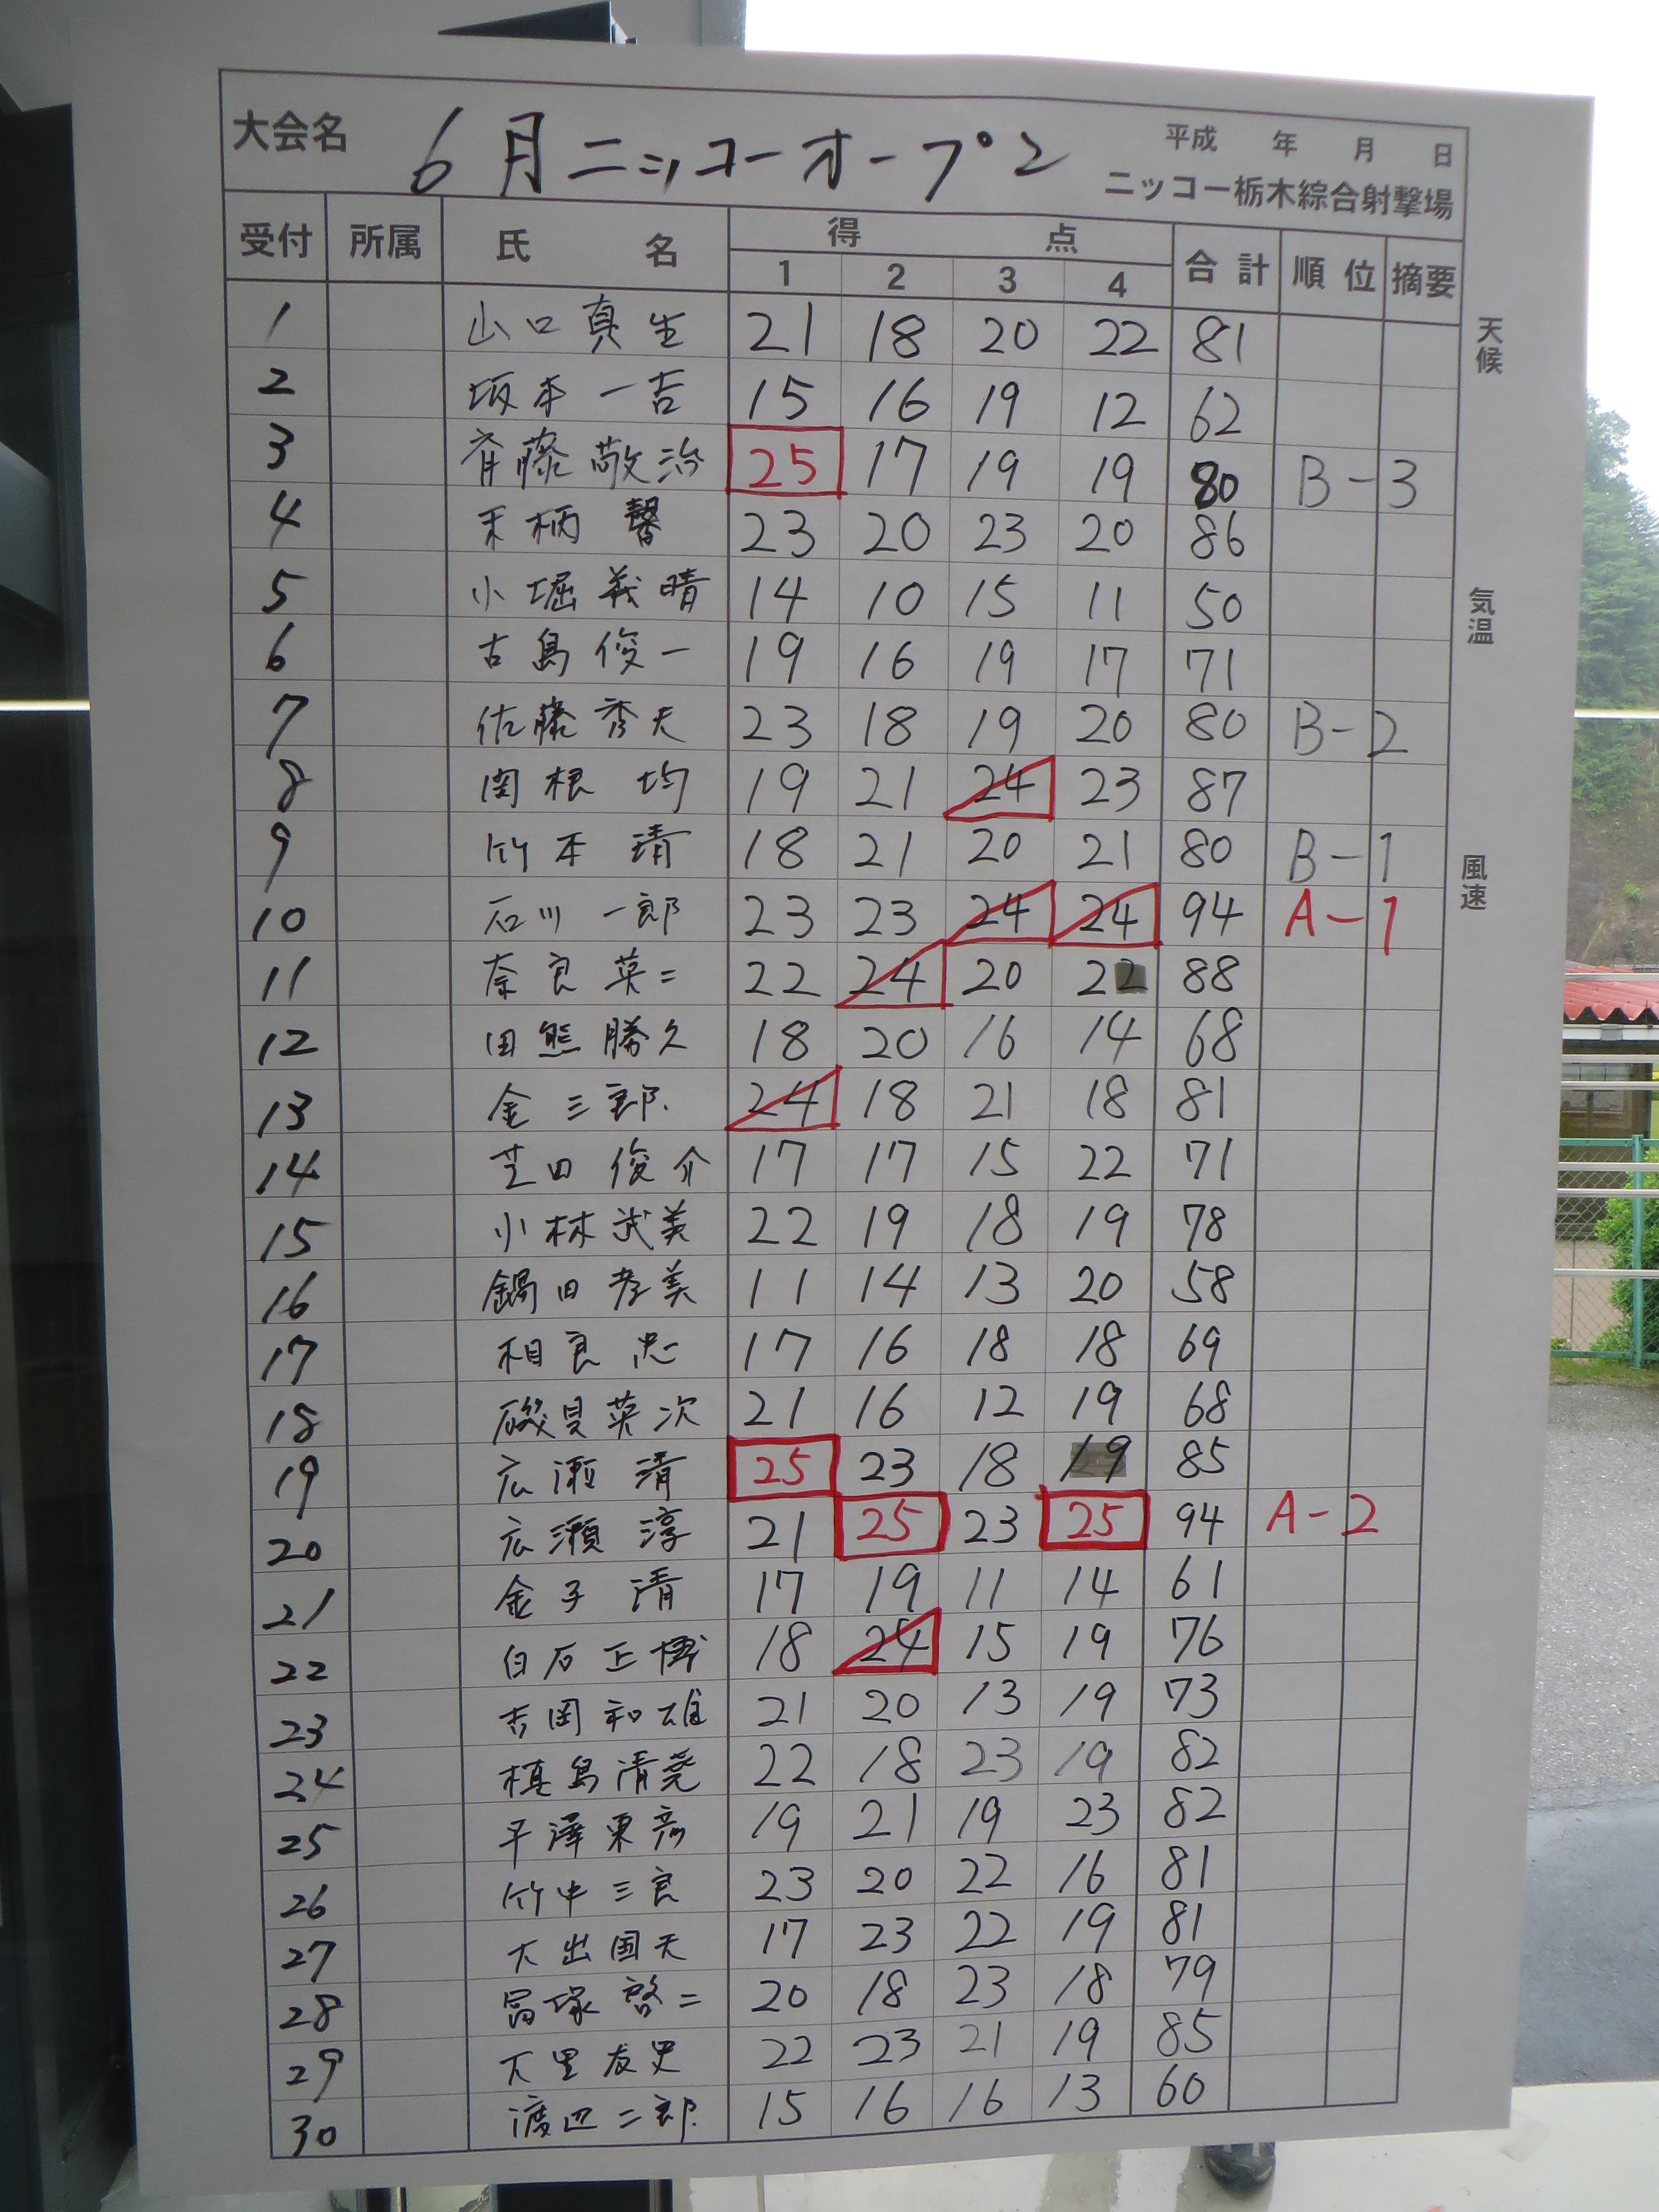 大会名 6月ニッコーオープン 平成 年 月 日
ニッコー栃木綜合射撃場
受付 所属 氏 名 得 点 合計 順位 摘要
1 2 3 4
1 山口真生 21 18 20 22 81
2 坂本一吉 15 16 19 12 62
3 斉藤敬治 25 17 19 19 80 B-3
4 柄 馨 23 20 23 20 86
5 小堀義晴 14 10 15 11 50
6 古島俊一 19 16 19 17 71
7 佐藤秀夫 23 18 19 20 80 B-2
8 関根 均 19 21 24 23 87
9 竹本 清 18 21 20 21 80 B-1
10 石川一郎 23 23 24 24 94 A-1
11 奈良英二 22 24 20 22 88
12 田熊勝久 18 20 16 14 68
13 金三郎 24 18 21 18 81
14 芝田俊介 17 17 15 22 71
15 小林武美 22 19 18 19 78
16 鍋田孝美 11 14 13 20 58
17 相良 忠 17 16 18 18 69
18 磯貝英次 21 16 12 19 68
19 広瀬 清 25 23 18 19 85
20 広瀬 淳 21 25 23 25 94 A-2
21 金子 清 17 19 11 14 61
22 白石正博 18 24 15 19 76
23 吉岡和雄 21 20 13 19 73
24 槙島清尭 22 18 23 19 82
25 平澤東彦 19 21 19 23 82
26 竹中三良 23 20 22 16 81
27 大出国夫 17 23 22 19 81
28 冨塚啓二 20 18 23 18 79
29 大里友史 22 23 21 19 85
30 渡辺二郎 15 16 16 13 60
天候
気温
風速